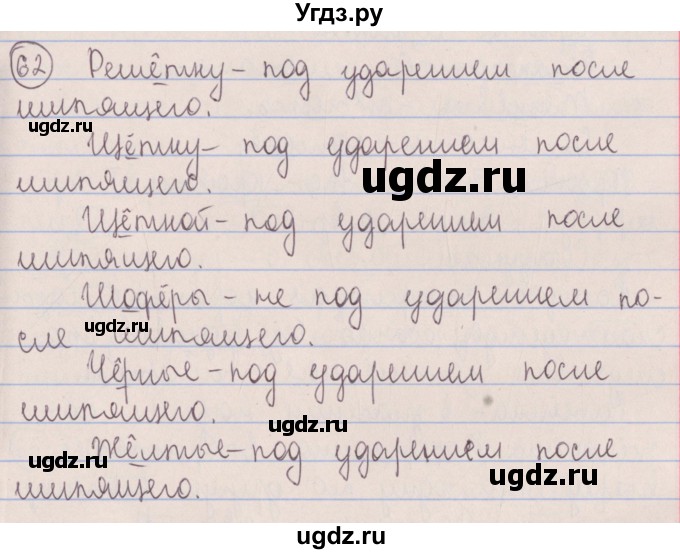 Угдз.ру
62 Решётку – под ударением после
шипящего.
ugdz.ru ugdz.ru
Щётку – под ударением после
шипящего. ugdz.ru
ugdz.ru
Щёткой – под ударением после
шипящего.
Шофёры – не под ударением по-
ugdz.ru
сле шипящего.
Чёрные – под ударением после
шипящего.
ugdz.ru
Жёлтые – под ударением после
ugdz.ru ugdz.ru
шипящего.
ugdz.ru
ugdz.ru